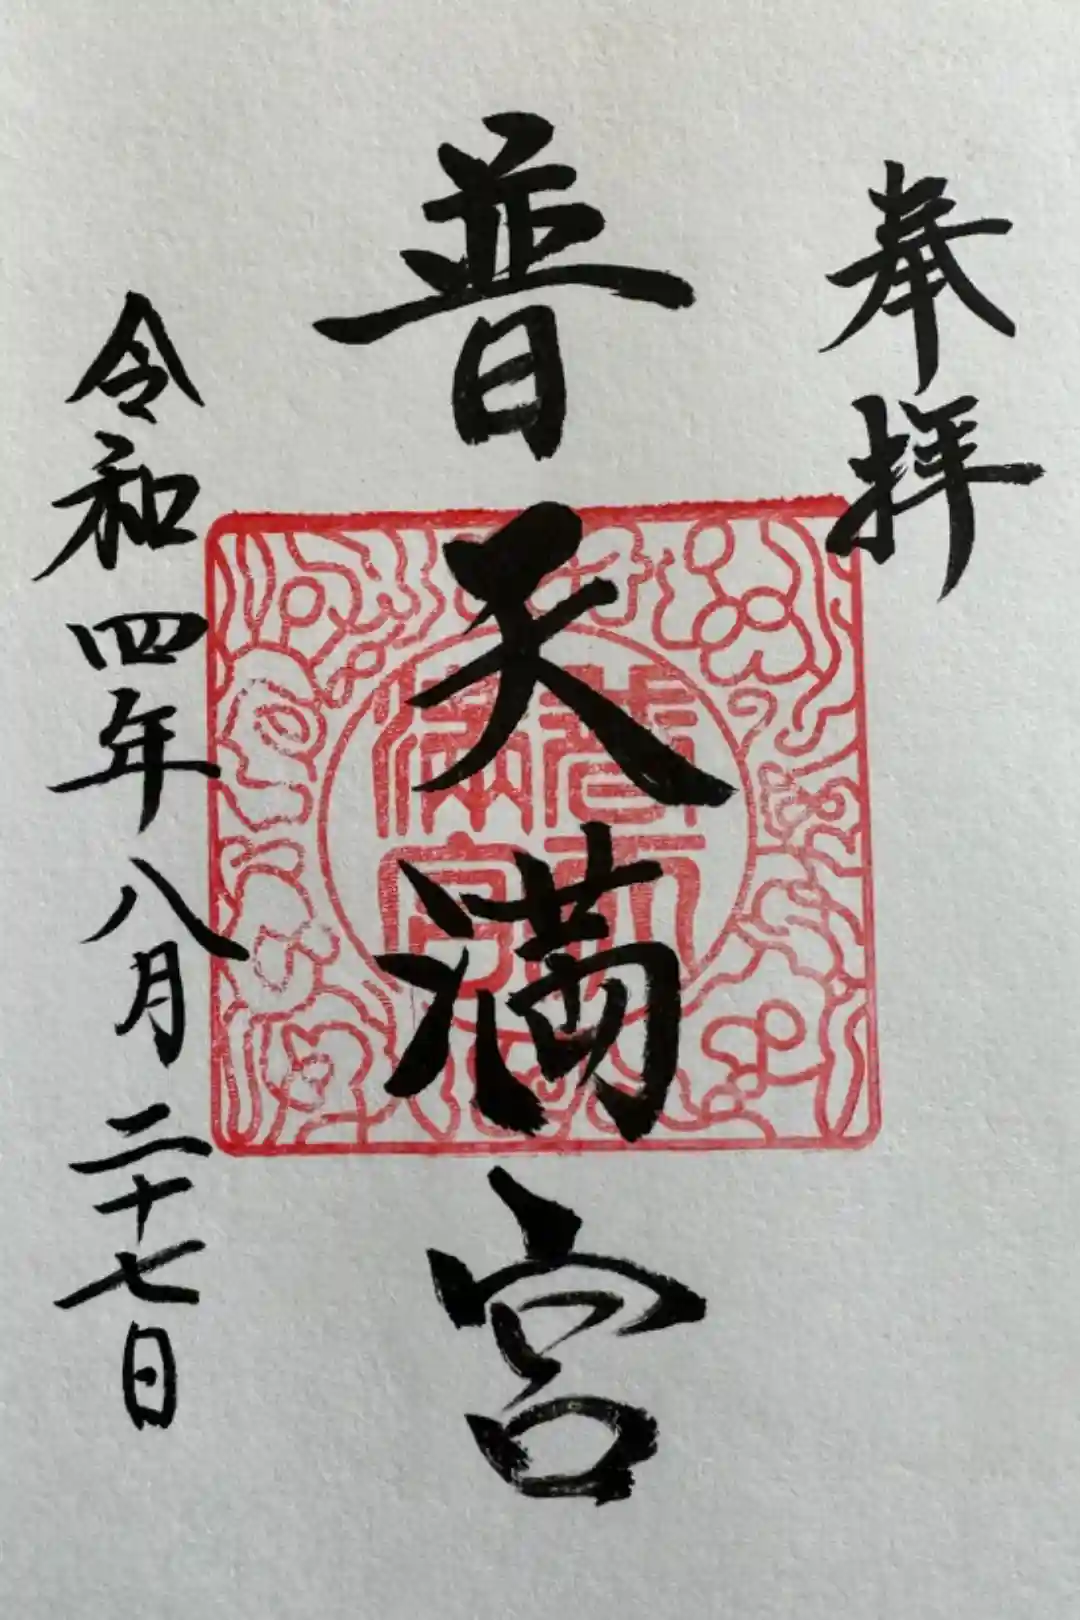 奉拝
普天満宮
令和四年八月二十七日
普天満宮